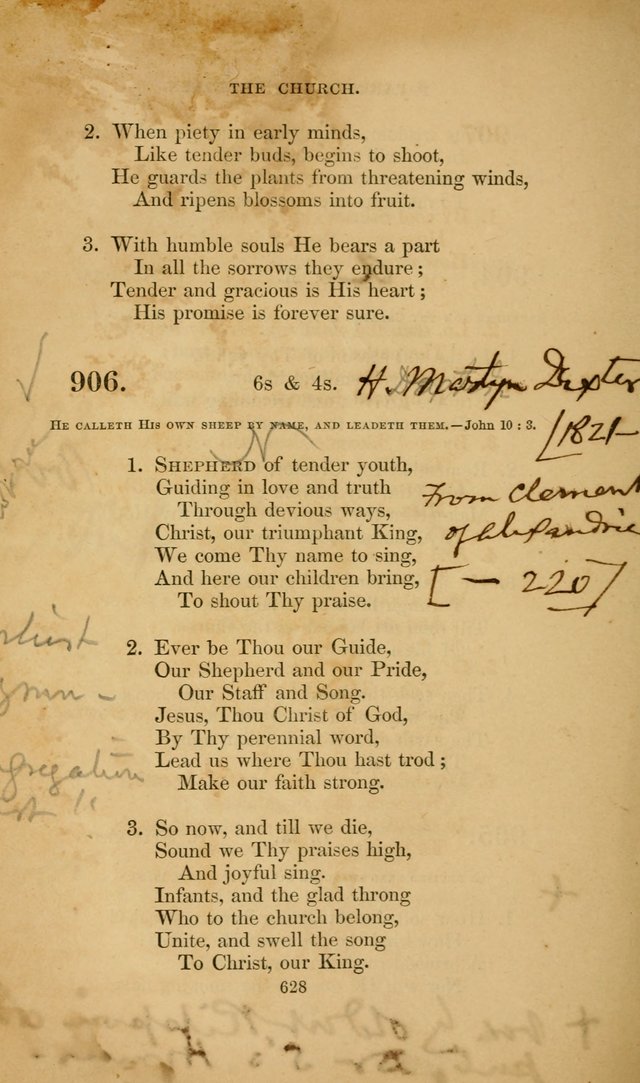 THE CHURCH.
2. When piety in early minds,
Like tender buds, begins to shoot,
He guards the plants from threatening winds,
And ripens blossoms into fruit.
3. With humble souls He bears a part
In all the sorrows they endure;
Tender and gracious is His heart;
His promise is forever sure.
906. 6s & 4s. H. Martyn Dexter
[1821-
He calleth His own sheep by name, and leadeth them.—John 10 : 3.
1. Shepherd of tender youth,
Guiding in love and truth
Through devious ways,
Christ, our triumphant King,
We come Thy name to sing,
And here our children bring,
To shout Thy praise.
From Clement
of Alexandria
[— 220]
2. Ever be Thou our Guide,
Our Shepherd and our Pride,
Our Staff and Song.
Jesus, Thou Christ of God,
By Thy perennial word,
Lead us where Thou hast trod;
Make our faith strong.
3. So now, and till we die,
Sound we Thy praises high,
And joyful sing.
Infants, and the glad throng
Who to the church belong,
Unite, and swell the song
To Christ, our King.
628